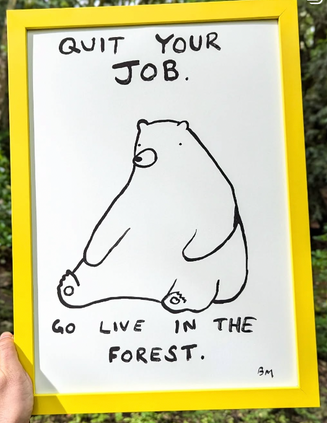 QUIT YOUR
JOB.
GO LIVE IN THE
FOREST.
BM